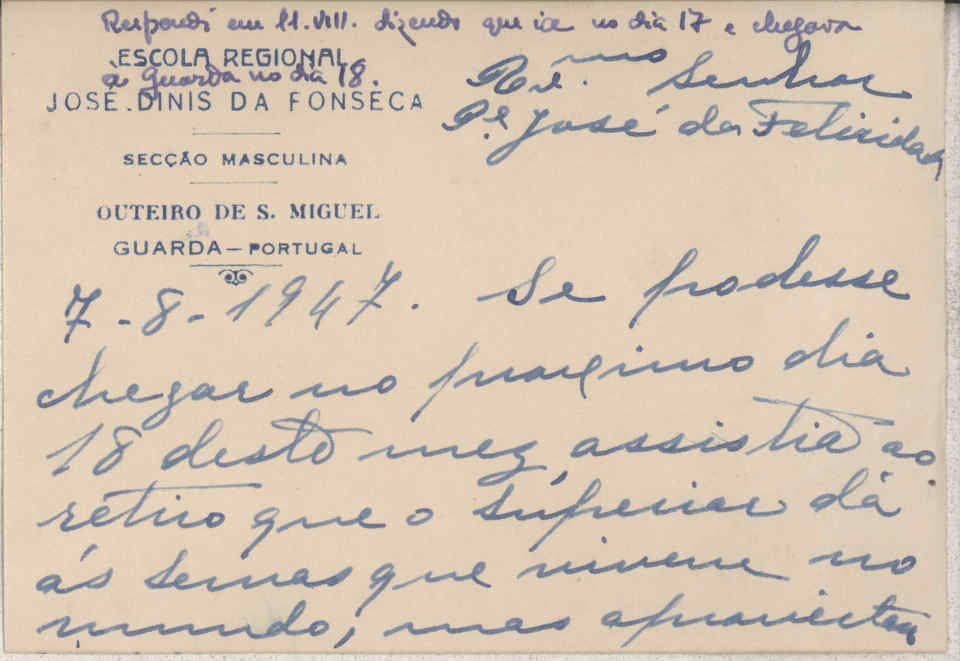 Respondi em 11.VIII. dizendo que ia no dia 17 e chegava
ESCOLA REGIONAL
à Guarda no dia 18.
JOSÉ DINIS DA FONSECA
SECÇÃO MASCULINA
OUTEIRO DE S. MIGUEL
GUARDA — PORTUGAL
Rev.mo Senhor
P.e José da Felicidade
7-8-1947. Se podesse
chegar no proximo dia
18 deste mez assistia ao
retiro que o superior dá
ás servas que vivem no
mundo, mas aproveitan